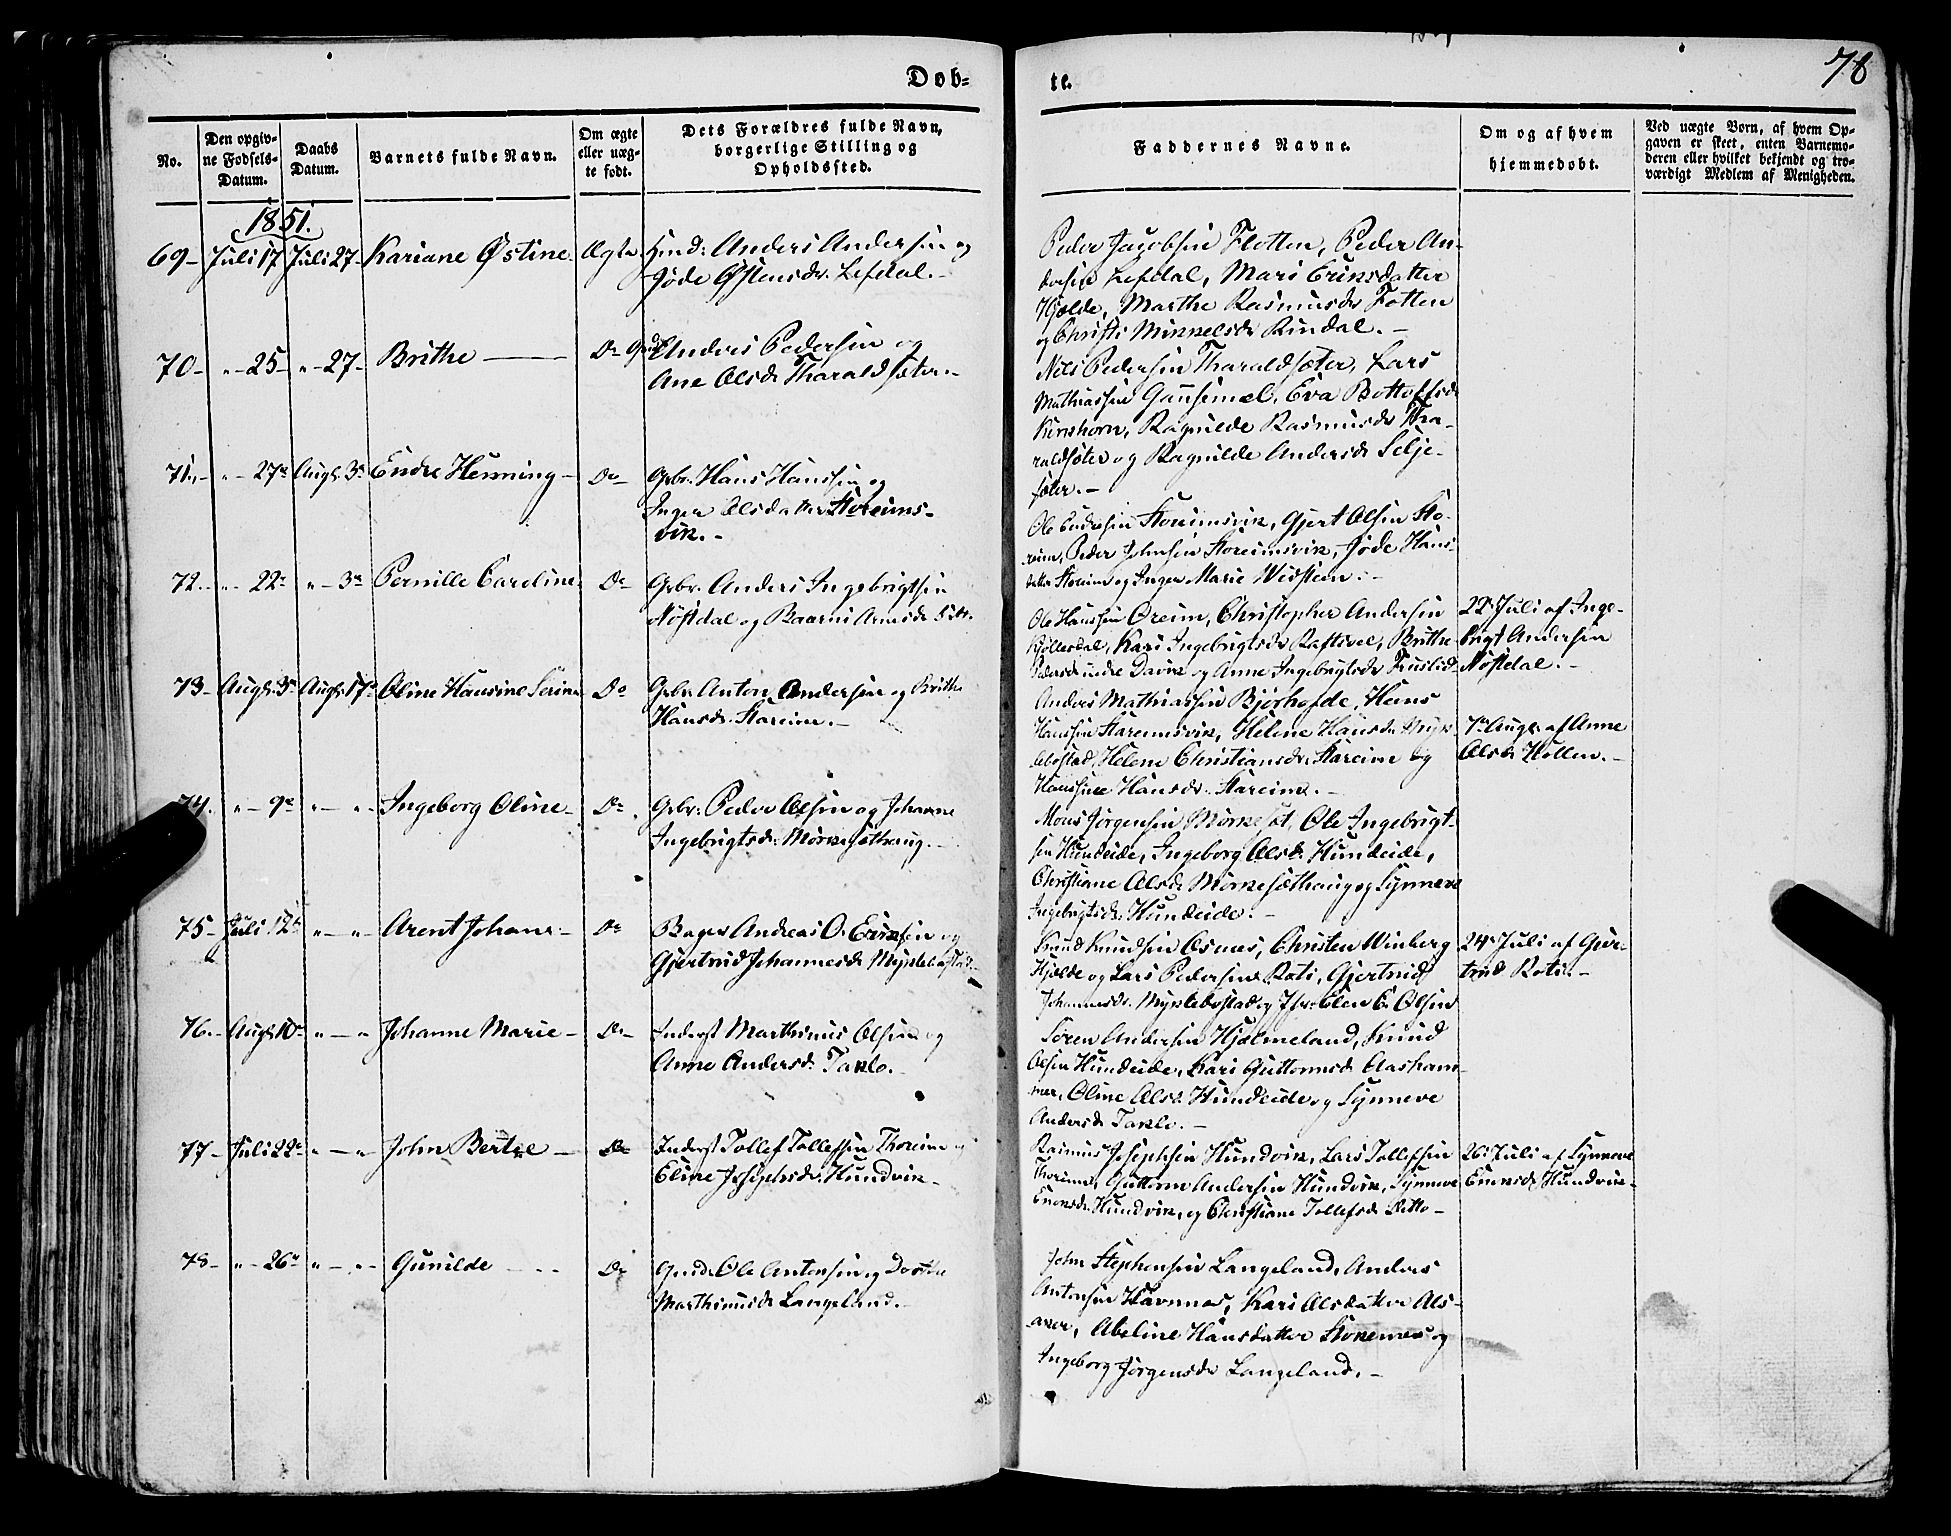 Døb-
te.
78
No.
Den opgiv-
ne Fødsels-
Datum.
Daabs
Datum.
Barnets fulde Navn.
Om ægte
eller uæg-
te født.
Dets Forældres fulde Navn,
borgerlige Stilling og
Opholdssted.
Faddernes Navne.
Om og af hvem
hjemmedøbt.
Ved uægte Børn, af hvem Op-
gaven er skeet, enten Barnemo-
deren eller hvilket bekjendt og tro-
værdigt Medlem af Menigheden.
1851.
69- Juli 17 Juli 27- Kariane Østine Ægte Anders Andersen og
Jøde Østensdr. Lefdal.-
Peder Jacobsen Flotten, Peder An-
dersen Lefdal, Mari Eriksdatter
Hjelde, Marthe Rasmusdr Totten
og Christi Mikkelsdr Rindal.-
70- " - 25- " - 27- Brithe Do Anders Pedersen og
Ane Olsdr Tharaldsæter.-
Nils Pedersen Tharaldsæter, Lars
Mathiassen Gausemel, Eva Bottolfsdr
Kirkhorn, Ragnilde Rasmusdr Tha-
raldsæter og Ragnilde Andersdr Selje-
sæter.-
71.- " - 27de Augs. 3de Endre Henning- Do- Gbr. Hans Hanssen og
Inger Olsdatter Storeims-
vik.-
Ole Endresen Storeimsvik, Gjert Olsen Sto-
reim, Peder Johnsen Storeimsvik, Jøde Hans-
datter Storeim og Inger Marie
72.- " - 22- " - 3de Pernille Caroline Do- Gbr. Anders Ingebrigtsen
Nøstdal og Arnesdr
Ole Hanssen Øreim, Christopher Andersen
Kjøllesdal, Kari Ingebrigtsdr Rafteveel, Brithe
Pedersdr indre Davik og Anne Ingebrigtsdr
22de Juli af Inge-
brigt Andersen
Nøstdal.-
73- Augs. 3de Augs. 17de Oline Hansine Do Gbr. Anton Andersen og Brithe
Hansdr. Stareim.-
Anders Mathiassen Hans
Hanssen Stareimsvik, Helene Hansdr Myk-
lebostad, Helene Christiansdr. Stareim og
Hanssine Hansdr. Stareim.-
7de Augs. af Anne
Olsdr Hollen.-
74. " - 9de " - " - Ingeborg Oline- Do. Gbr. Peder Olsen og Johanne
Ingebrigtsdr. Mørkesæthaug.-
Mons Jørgensen Ole Ingebrigt-
sen Hundeide, Ingeborg Olsdr. Hundeide,
Christiane Olsdr Mørkesæthaug og Synneve
Ingebrigtsdr. Hundeide.-
75- Juli 12te " - " - Arent Johan Do Andreas O. Eriksen og
Gjertrud Johannesdr Myklebostad.-
Knud Knudsen Osnes, Christen Winberg
Hjelde og Lars Pedersen Roti, Gjertrud
Johannesdr. Myklebostad og Jfr. Elen E. Olsen
24de Juli af Gjer-
trud Roti.-
76.- Augs. 10de " - " Johanne Marie- Do- Inderst Marthinus Olsen og
Anne Andersdr. Taklo.-
Søren Andersen Hjelmeland, Knud
Olsen Hundeide, Kari Guttormsdr Aasham-
mer, Oline Olsdr Hundeide og Synneve
Andersdr Taklo.-
77- Juli 22de " - " John Bertel- Do- Inderst Tollef Tollefsen Thoreim og
Eline Josephsdr. Hundvik-
Rasmus Josephsen Hundvik, Lars Tollefsen
Thoreim, Guttorm Andersen Hundvik, Synneve
Eriksdr. Hundvik, og Christiane Tollefsdr Ditto-
26de Juli af Synneve
Eriksdr Hundvik-
78- " - 26de " - " - Gunilde Do Gmd. Ole Antonsen og Dorthe
Marthinusdr Langeland.-
John Stephensen Langeland, Anders
Antonsen Havnnes, Kari Olsdatter Als-
aker, Abeline Hansdatter Stokenes og
Ingeborg Jørgensdr Langeland.-